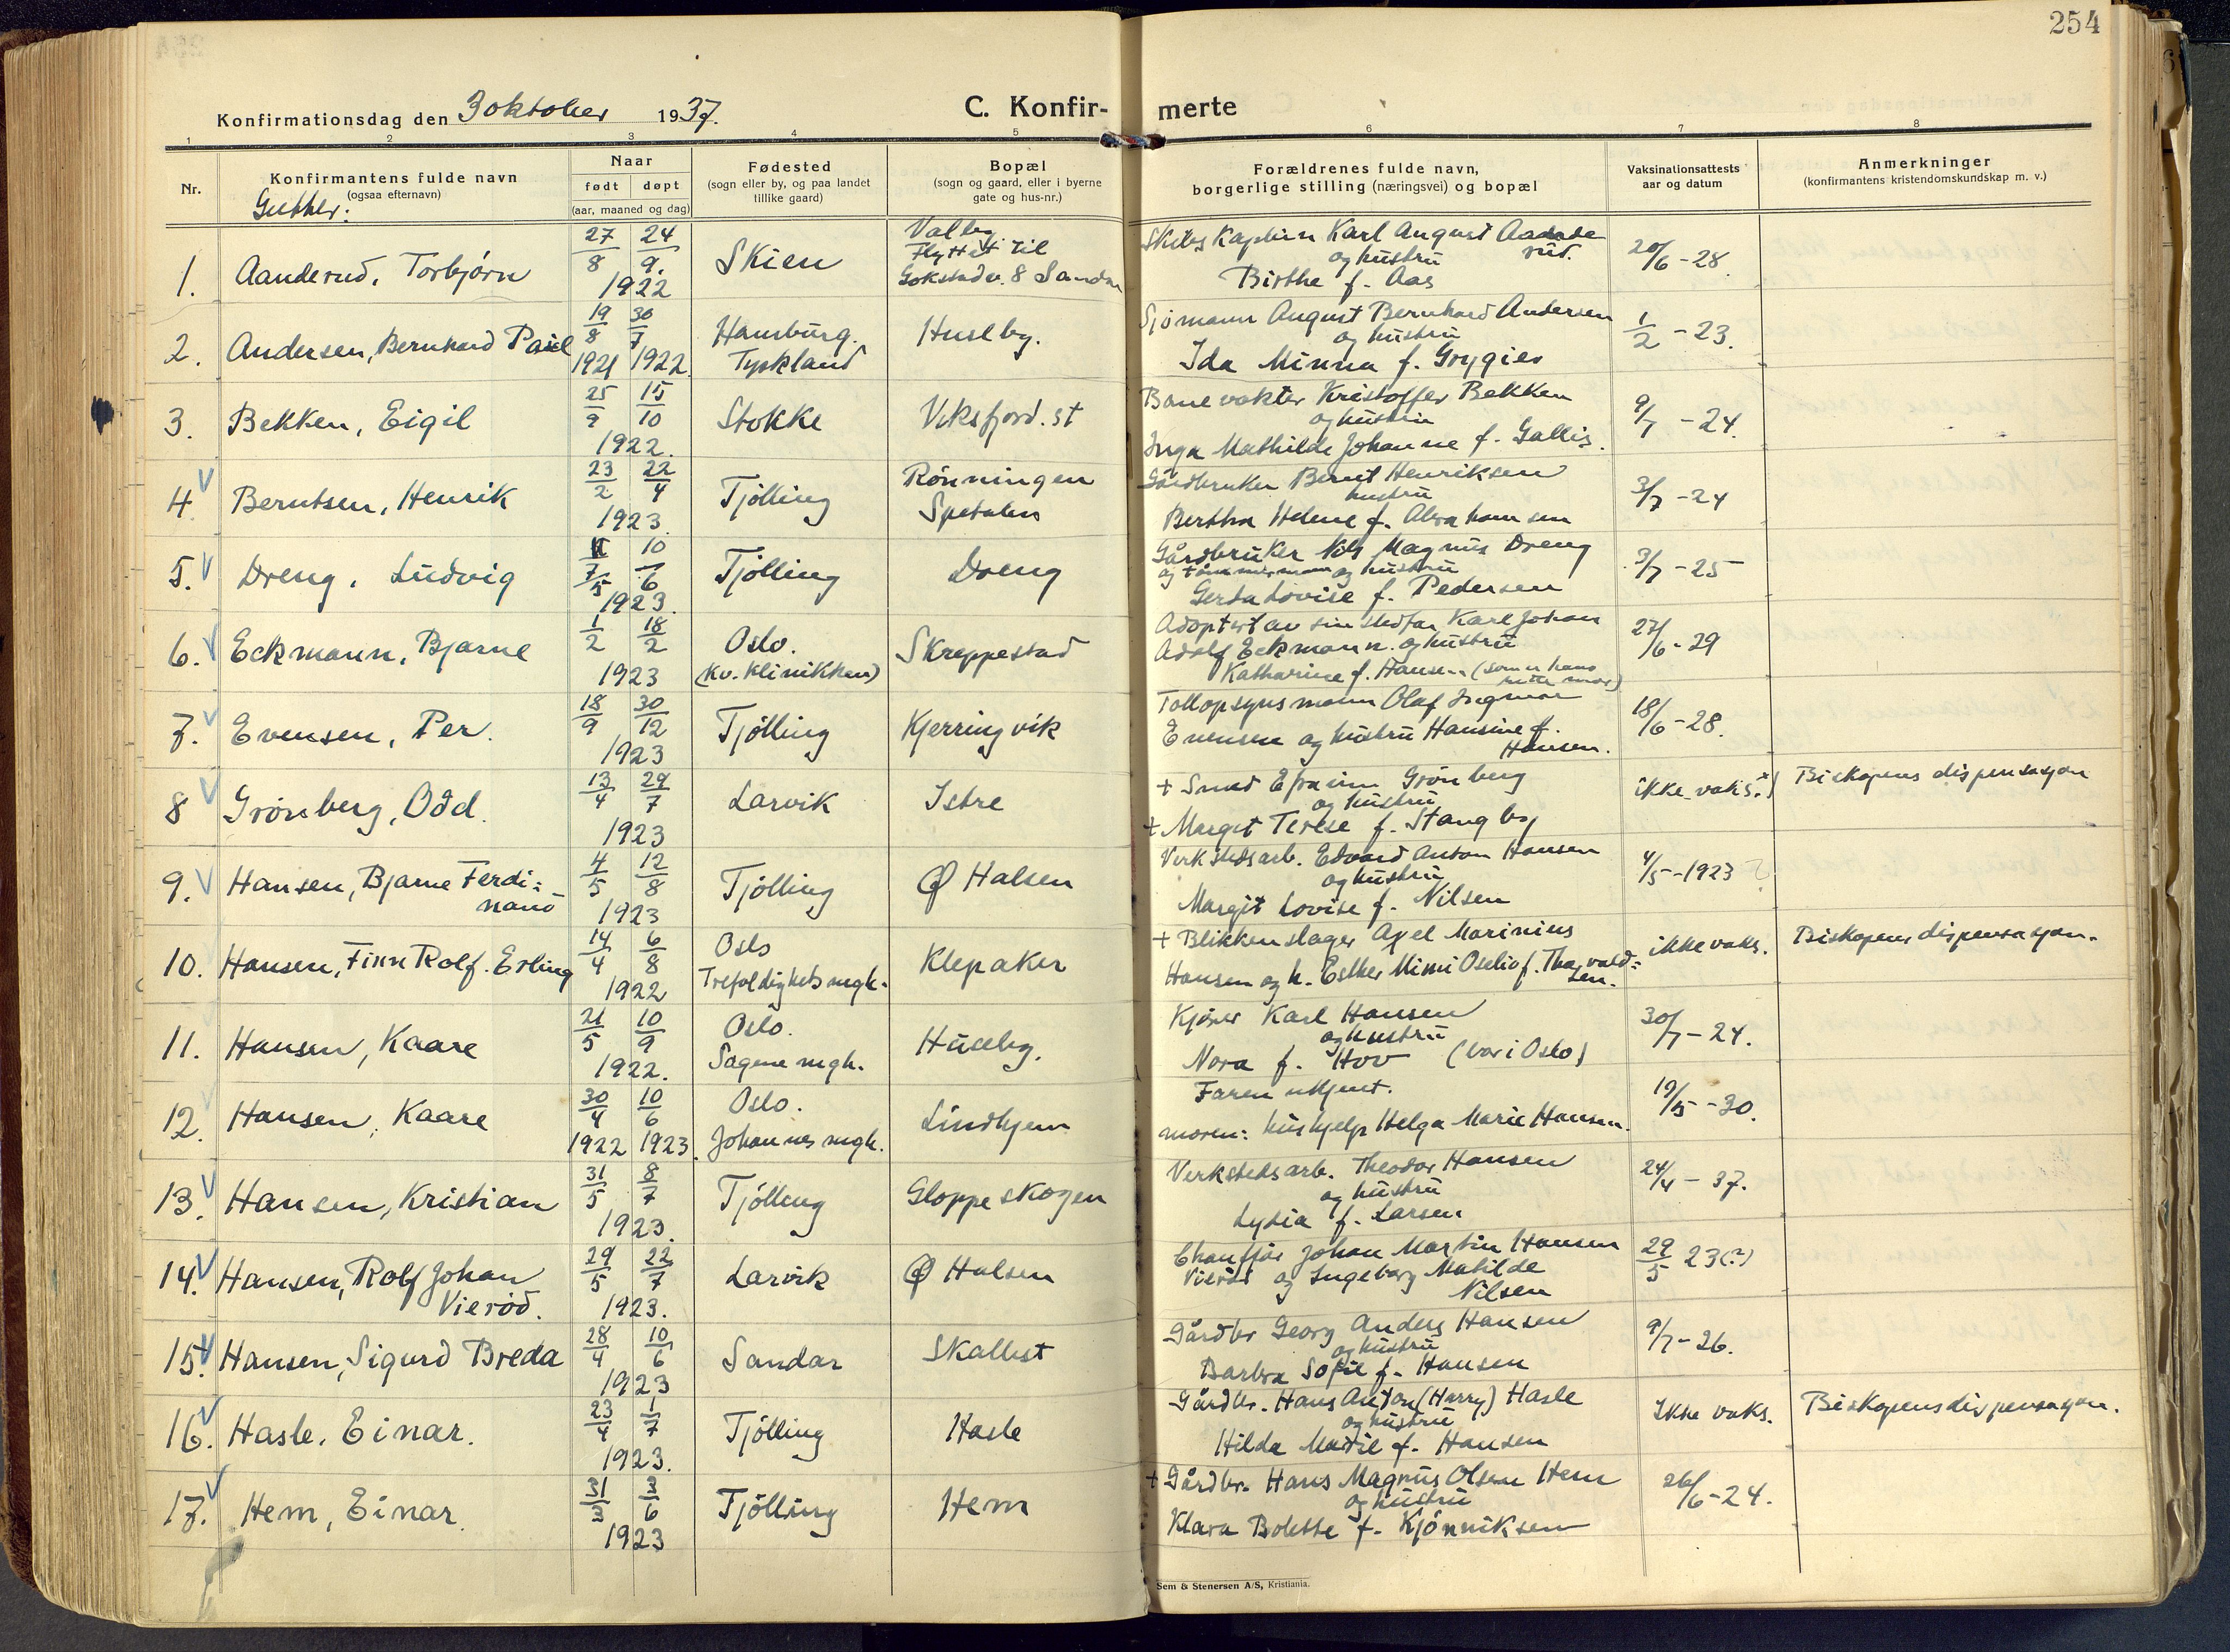 254
Konfirmationsdag den 3 oktober 1937.
C. Konfir- merte
1 2 3 4 5 6 7 8
Nr.
Konfirmantens fulde navn
(ogsaa efternavn)
Gutter:
Naar
født døpt
(aar, maaned og dag)
Fødested
(sogn eller by, og paa landet
tillike gaard)
Bopæl
(sogn og gaard, eller i byerne
gate og hus-nr.)
Forældrenes fulde navn,
borgerlige stilling (næringsvei) og bopæl
Vaksinationsattests
aar og datum
Anmerkninger
(konfirmantens kristendomskundskap m. v.)
1. Aanderud, Torbjørn
27/8 24/9.
1922
Skien
Valby
Flyttet til
Gokstadv. 8
Skibskaptein Karl August
og hustru
Birthe f. Aas
20/6 - 28.
2. Andersen, Bernhard Paul
19/8 30/7
1921 1922.
Hamburg.
Tyskland
Huseby.
Sjømann August Bernhard Andersen
og hustru
Ida Minna f.
1/2 - 23.
3. Bekken, Eigil
25/9 15/10
1922.
Stokke
Viksfjord. st
Banevokter Kristoffer Bekken
og hustru
Inga Mathilde Johanne f. Gallis.
9/7 - 24.
4. Berntsen, Henrik
23/2 22/4
1923.
Tjölling
Rønningen
Spetalen
Gårdbruker Bernt Henriksen
hustru
Bertha Helene f. Abrahamsen
3/7 - 24
5. Dreng, Ludvig
7/5 10/6
1923.
Tjölling
Dreng
Gårdbruker Nils Magnus Dreng
og tømmermann og hustru
Gerda Lovise f. Pedersen
3/7 - 25
6. Eckmann, Bjarne
1/2 18/2
1923
Oslo.
(Kv. klinikken)
Skreppestad
Adoptert av sin stedfar Karl Johan
Adolf Eckmann. og hustru
Katharine f. Hansen (som er hans
rette mor)
27/6 - 29
7. Evensen, Per.
18/9 30/12
1923
Tjölling
Kjerringvik
Tollopsynsmann Olaf Ingmar
Evensen og hustru Hansine f.
Hansen.
18/6 - 28.
8 Grønberg, Odd.
13/4 29/7
1923
Larvik
Istre
+ Smed Efraim Grønberg
og hustru
+ Margit Terese f. Stangby
ikke vaks.
Biskopens dispensasjon
9. Hansen, Bjarne Ferdi=
nand
4/5 12/8
1923
Tjölling
Ø Halsen
Verkstedsarb. Edvard Anton Hansen
og hustru
Margit Lovise f. Nilsen
4/5 - 1923 ?
10. Hansen, Finn Rolf. Erling
14/4 6/8
1922
Oslo
Trefoldighets mgh.
Klepaker
+ Blikkenslager Axel Marinius
Hansen og h. Esther Mimi Oselio f. Thorvald=
sen.
ikke vaks.
Biskopens dispensasjon.
11. Hansen, Kaare
21/5 10/9
1922.
Oslo.
Sagene mgh.
Huseby.
Kjører Karl Hansen
og hustru
Nora f. Hov (bor i Oslo)
30/7 - 24.
12. Hansen, Kaare
30/4 10/6
1922 1923.
Oslo.
Johannes mgh.
Lindhjem
Faren ukjent.
moren: hushjelp Helga Marie Hansen.
19/5 - 30.
13. Hansen, Kristian
31/5 8/7
1923.
Tjölling
Gloppeskogen
Verkstedsarb. Theodor Hansen
og hustru
Lydia f. Larsen
24/4 - 37.
14. Hansen, Rolf Johan
Vierød.
29/5 22/7
1923.
Larvik
Ø Halsen
Chauffør Johan Martin Hansen
Vierød og Ingeborg Matilde
Nilsen
29/5 23(?)
15. Hansen, Sigurd Breda
28/4 10/6
1923
Sandar
Skallist
Gårdbr Georg Anders Hansen
og hustru
Barbra Sofie f. Hansen
9/7 - 26.
16. Hasle, Einar.
23/4 1/7
1923.
Tjölling
Hasle
Gårdbr. Hans Anton (Harry) Hasle
og hustru
Hilda Marie f. Hansen
Ikke vaks.
Biskopens dispensasjon.
17. Hem, Einar.
31/3 3/6
1923
Tjölling
Hem
+ Gårdbr. Hans Magnus Olsen Hem
og hustru
Klara Bolette f. Kjønniksen
26/6 - 24.
Sem & Stenersen A/S, Kristiania.